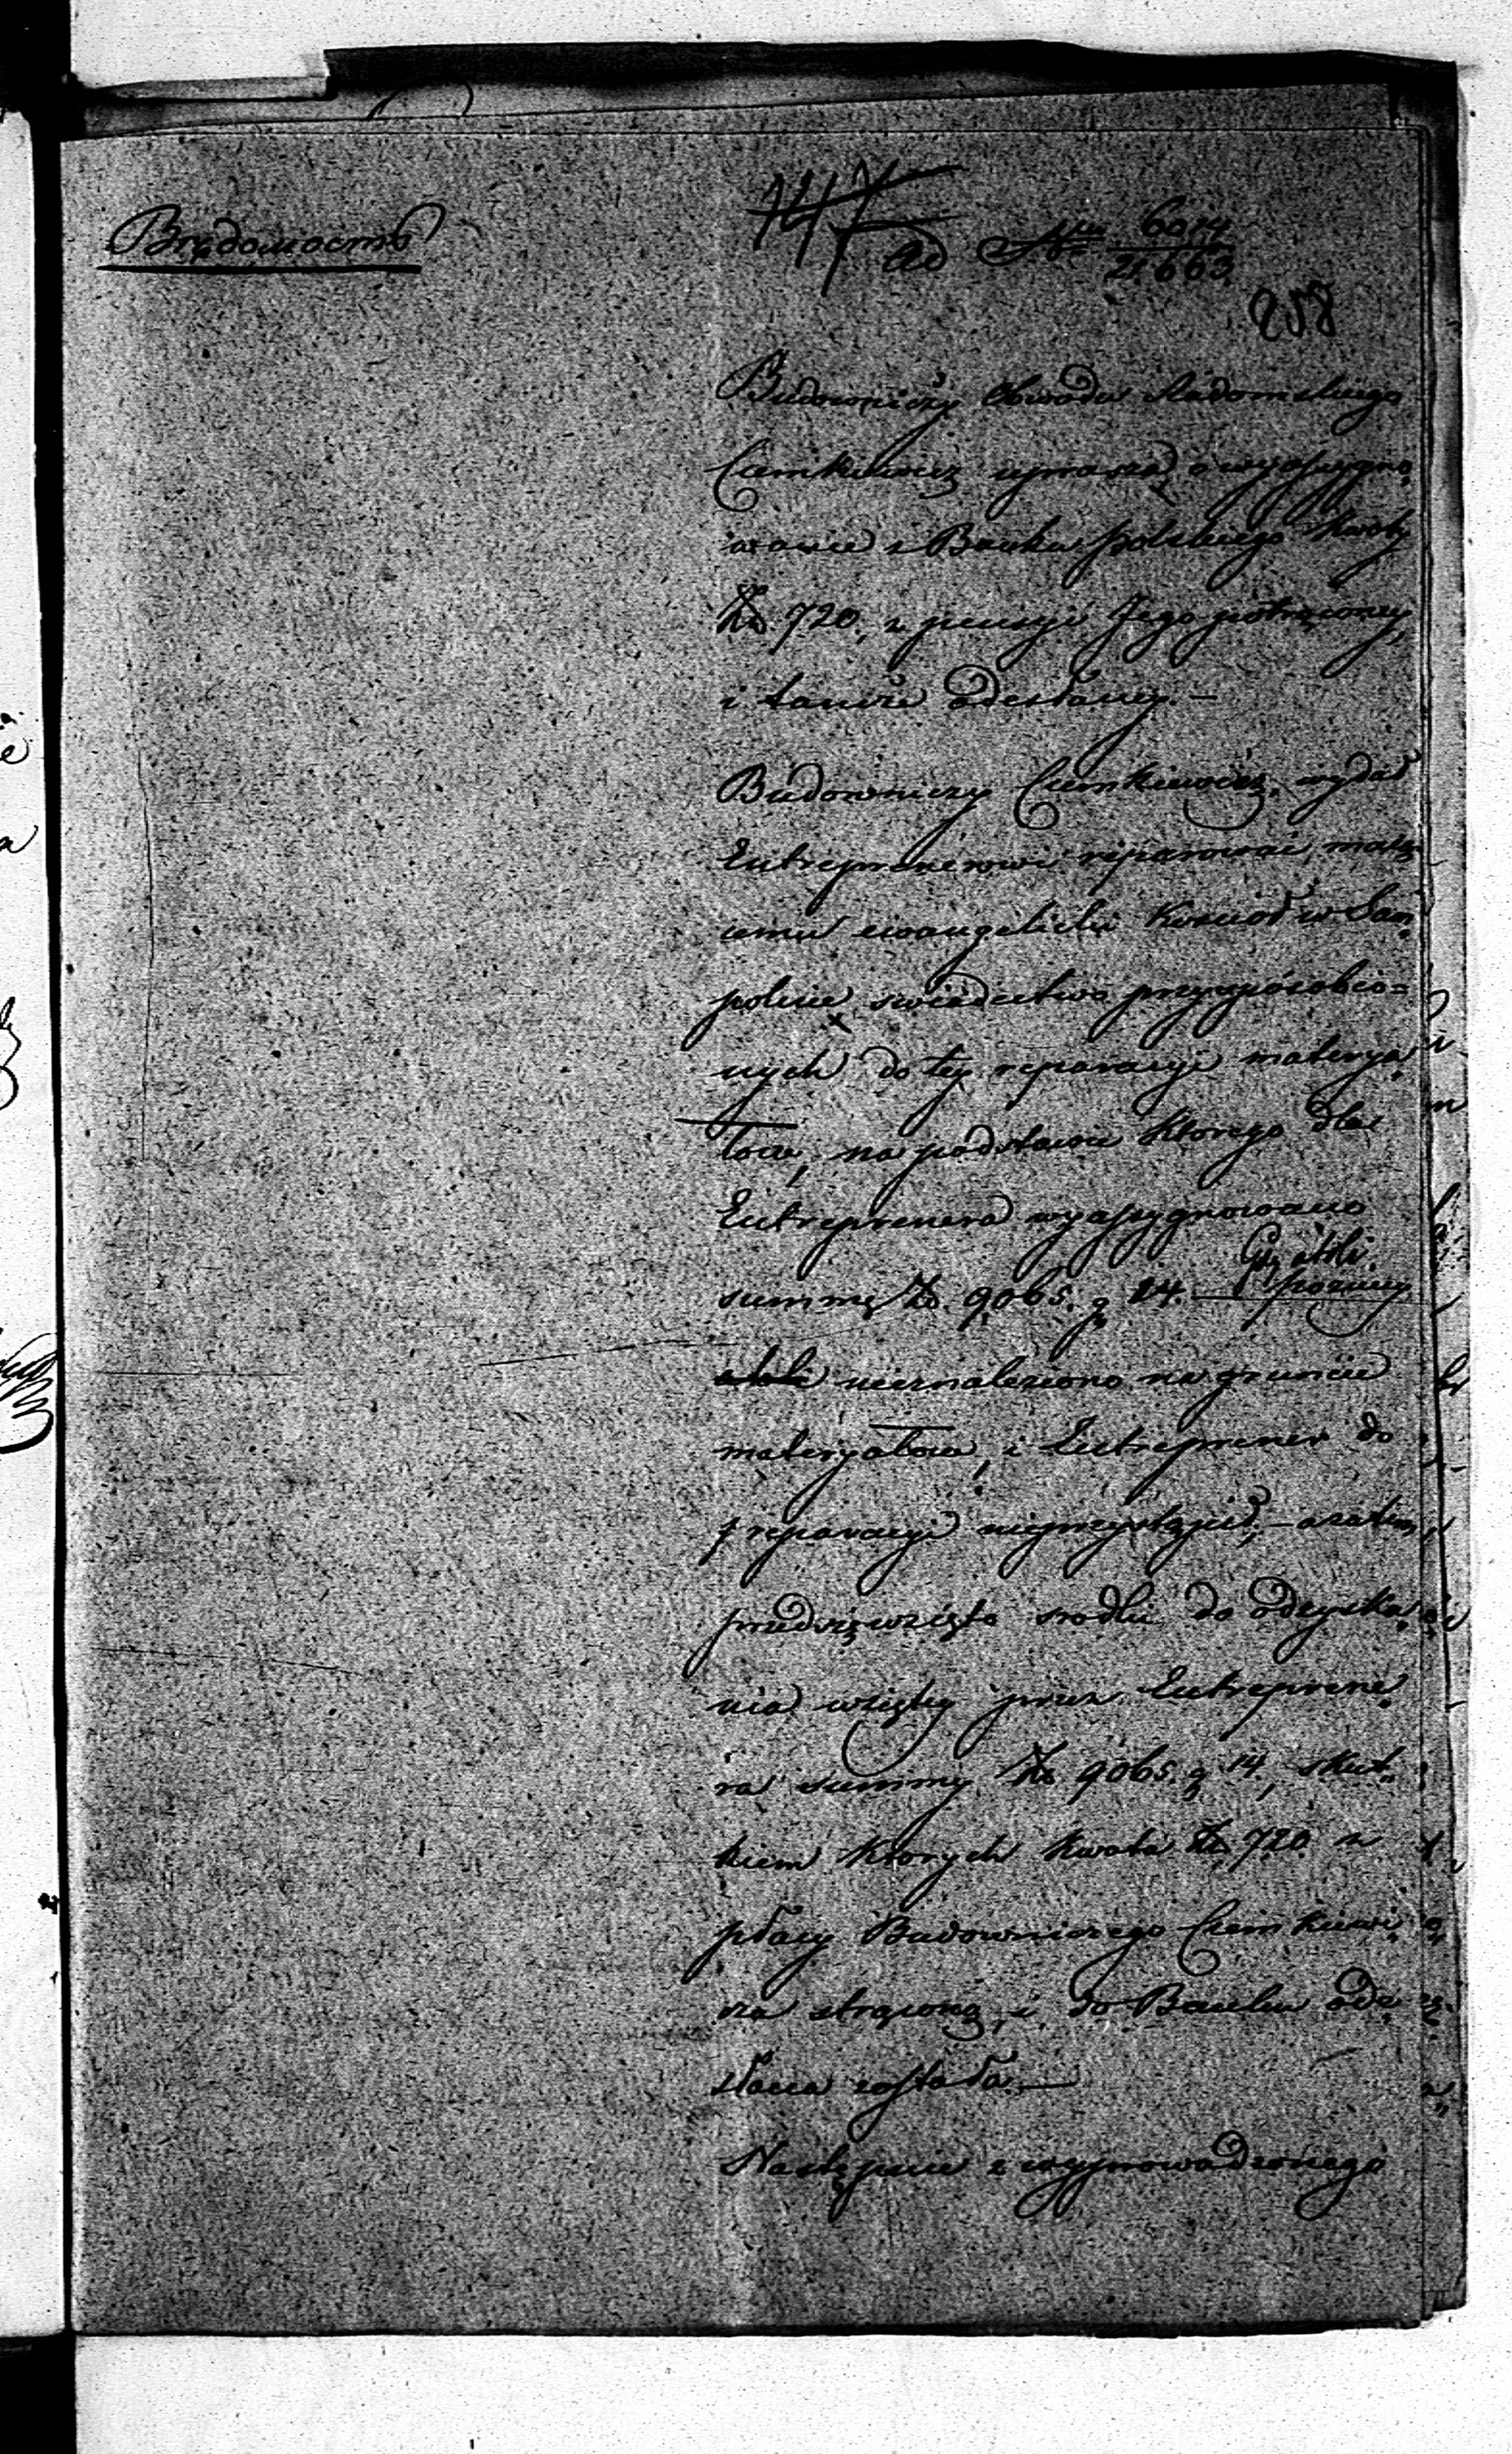 Вѣдомость
147
ad Nrm 6014/21663
258
Budowniczy Obwodu Radomskiego
Ciemkiewicz uprasza o wyassygno„
wanie z Banku polskiego kwoty
Zł. 720, z pensyi Jego potrąconey,
i tamże odesłaney. —
Budowniczy Ciemkiewicz, wydał
Entreprenerowi reparować mają„
cemu ewangelicki Kosciół w
polnie, swiadectwo przysposobio„
nych do tey reparacyi materya„
łów, na podstawie którego dla
Entreprenera wyassygnowano
summę Zł. 9065. g 14. Gdy atoli
pozniey
nieznaleziono na gruncie
materyałów, i Entreprener do
reparacyi nieprzystąpił, – a zatem
przedsięwzięto srodki do odzyska„
nia wziętey przez Entreprene„
ra summy Zł. 9065. g 14, skut„
kiem których kwota Zł. 720 z
płacy Budowniczego Ciemkiewi„
cza strącona, i do Banku ode„
słana została. —
Następnie z wyprowadzonego